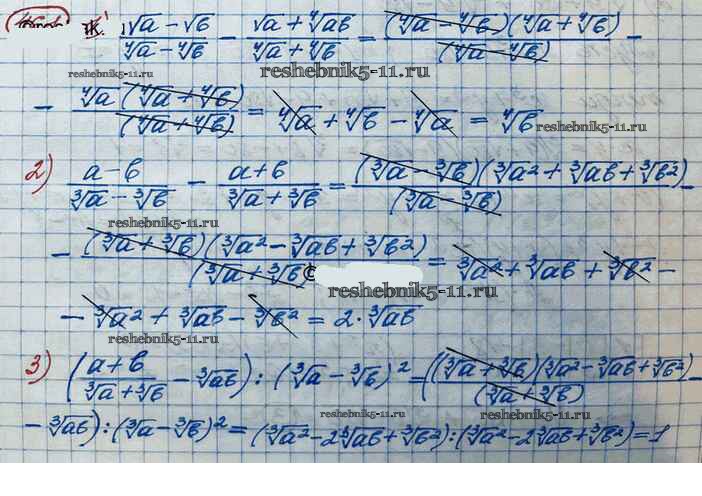 1) (√a − √b)/(⁴√a − ⁴√b) − (√a + ⁴√ab)/(⁴√a + ⁴√b) = (⁴√a − ⁴√b)(⁴√a + ⁴√b)/(⁴√a − ⁴√b) −
reshebnik5-11.ru
− ⁴√a (⁴√a + ⁴√b)/(⁴√a + ⁴√b) = ⁴√a + ⁴√b − ⁴√a = ⁴√b
reshebnik5-11.ru
reshebnik5-11.ru
2) (a − b)/(³√a − ³√b) − (a + b)/(³√a + ³√b) = (³√a − ³√b)(³√a² + ³√ab + ³√b²)/(³√a − ³√b) −
reshebnik5-11.ru
− (³√a + ³√b)(³√a² − ³√ab + ³√b²)/(³√a + ³√b) = ³√a² + ³√ab + ³√b² −
©
reshebnik5-11.ru
− ³√a² + ³√ab − ³√b² = 2·³√ab
reshebnik5-11.ru
3) ((a + b)/(³√a + ³√b) − ³√ab) : (³√a − ³√b)² = ((³√a + ³√b)(³√a² − ³√ab + ³√b²)/(³√a + ³√b) −
reshebnik5-11.ru
reshebnik5-11.ru
− ³√ab) : (³√a − ³√b)² = (³√a² − 2³√ab + ³√b²) : (³√a² − 2³√ab + ³√b²) = 1